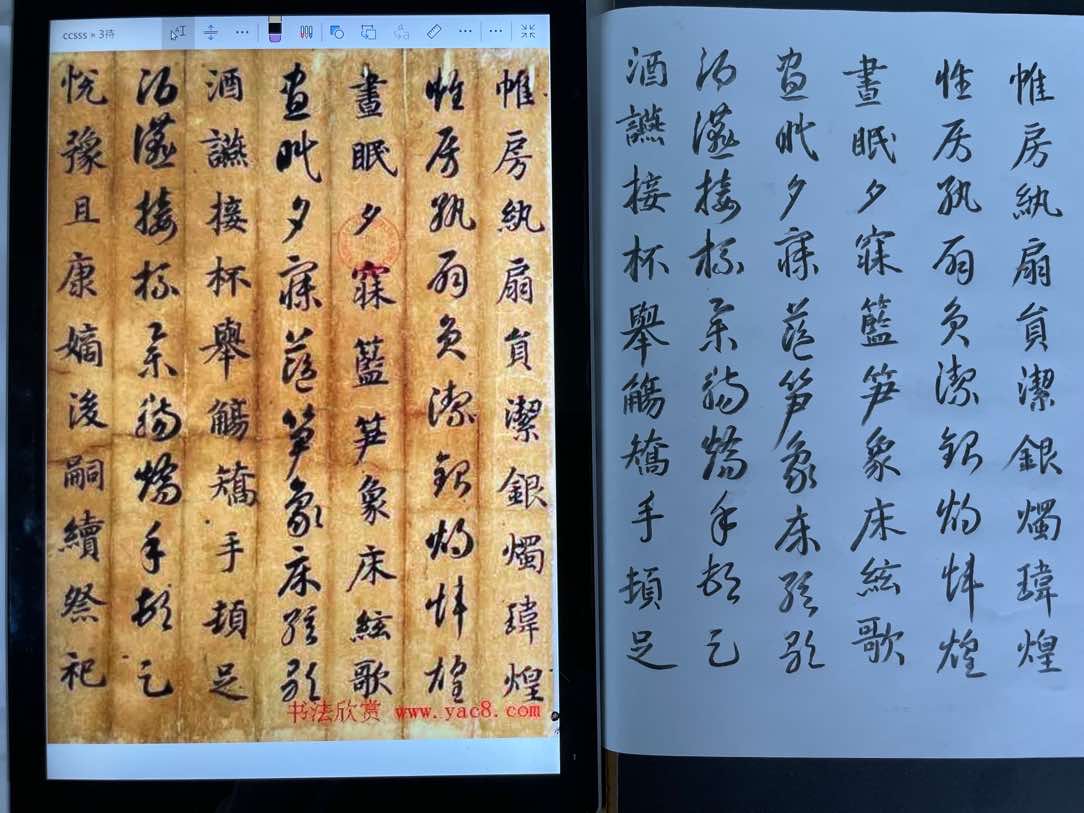 ccsss » 3待
帷房紈扇員潔銀燭瑋煌
帷房紈扇員潔銀燭煒煌
晝眠夕寐籃笋象床絃歌
晝眠夕寐籃笋象床絃歌
酒讌接杯舉觴矯手頓足
酒讌接杯舉觴矯手頓足
悅豫且康嫡後嗣續祭祀
书法欣赏 www.yac8.com
帷房紈扇員潔銀燭瑋煌
帷房紈扇員潔銀燭煒煌
晝眠夕寐籃笋象床絃歌
晝眠夕寐籃笋象床絃歌
酒讌接杯舉觴矯手頓足
酒讌接杯舉觴矯手頓足